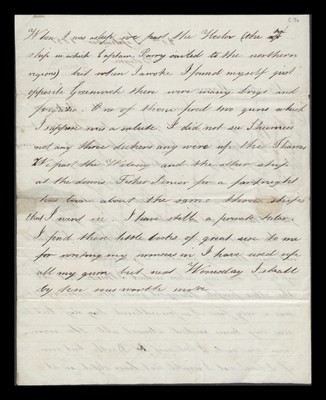 When I was asleep we past the Hecla (the
ship in which Captain Parry sailed to the northern
regions) but when I awoke I found myself just
opposite Greenwich there were many brigs and
frigates. One of them fired two guns which
I suppose was a salute. I did not see
not any three deckers any more up the Thames
We past the and the other ship
at the downs. Fisher Senior for a fortnight
has been about the same three ships
that I went on I have still a private tutor.
I find these little books of great use to me
for writing my exercises in I have used up
all my gum but next Wensday I shall
by ten more